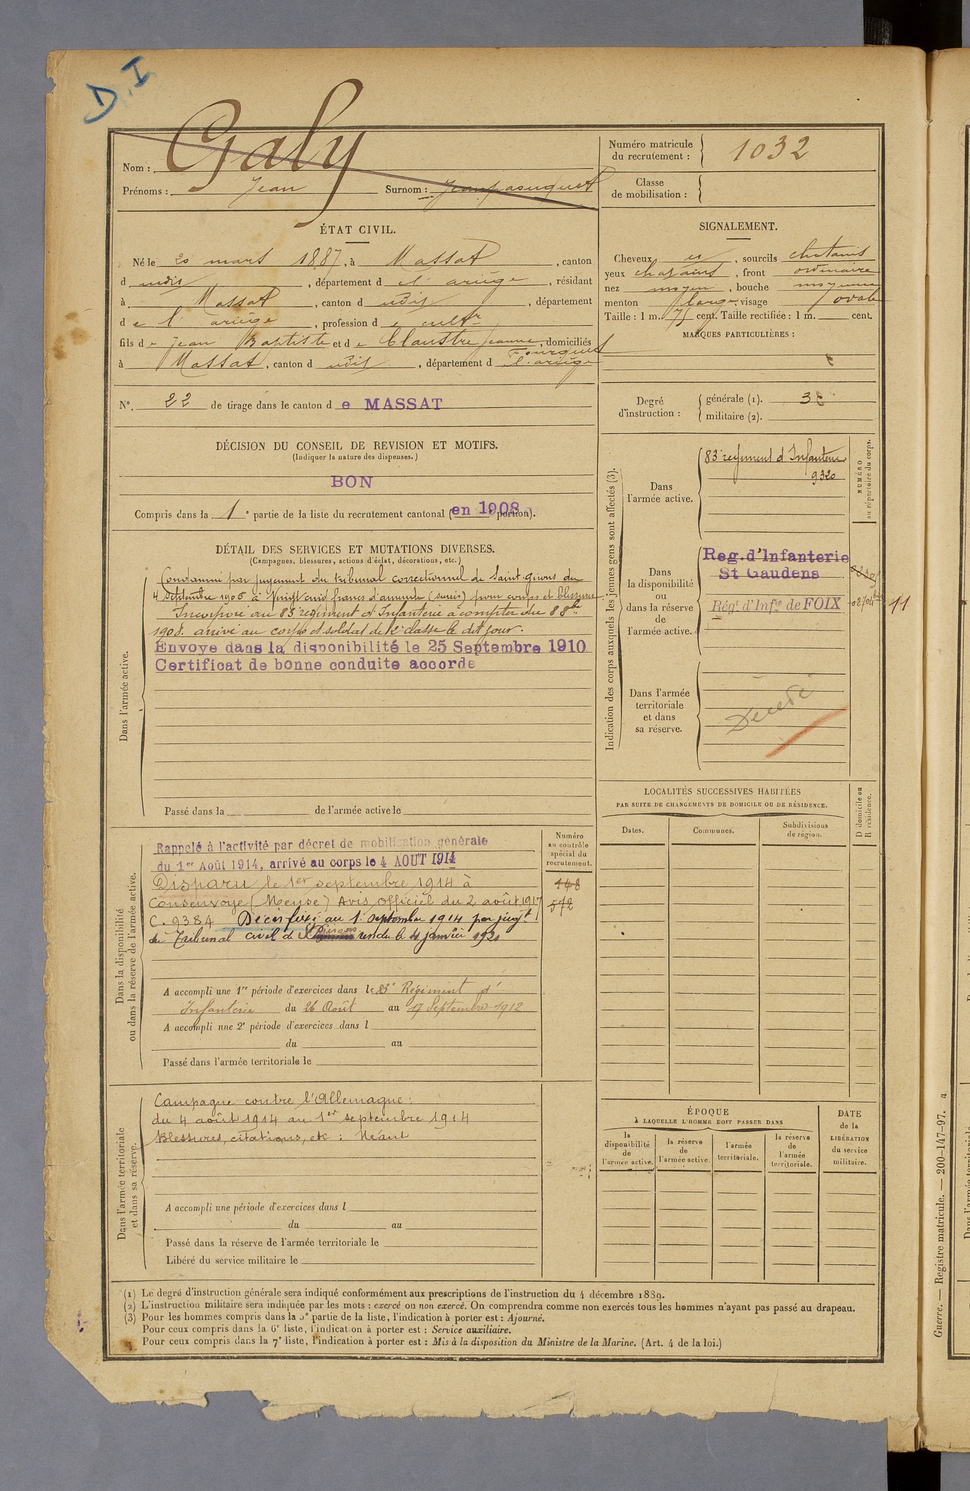 D.I
Nom : Galy
Prénoms : Jean Surnom :
Numéro matricule
du recrutement : 1032
Classe
de mobilisation :
ÉTAT CIVIL.
Né le 20 mars 1887, à Massat, canton
d udit, département d e l'ariège, résidant
à Massat, canton d udit, département
d e l'ariège, profession d e cultr
fils d e Jean Baptiste et d e Claustre Jeanne, domiciliés
à Massat, canton d udit, département d l'ariège
SIGNALEMENT.
Cheveux , sourcils chatains
yeux chatains, front ordinaire
nez moyen, bouche moyenne
menton large, visage ovale
Taille : 1 m. 75 cent. Taille rectifiée : 1 m. cent.
MARQUES PARTICULIÈRES :
N°. 22 de tirage dans le canton d e MASSAT
Degré
d'instruction :
générale (1). 3
militaire (2).
DÉCISION DU CONSEIL DE REVISION ET MOTIFS.
(Indiquer la nature des dispenses.)
BON
Compris dans la 1e partie de la liste du recrutement cantonal (en 1908 portion).
DÉTAIL DES SERVICES ET MUTATIONS DIVERSES.
(Campagnes, blessures, actions d'éclat, décorations, etc.)
Dans l'armée active.
Condamné par jugement du tribunal correctionnel de Saint-Girons du
4 septembre 1906 à Vingt cinq francs d'amende (sursis) pour coups et blessures
Incorporé au 83 régiment d'Infanterie à compter du 8 8bre
1908. arrivé au corps et soldat de 2e classe le dit jour.
Envoye dans la disponibilité le 25 Septembre 1910
Certificat de bonne conduite accorde
Passé dans la de l'armée active le
Indication des corps auxquels les jeunes gens sont affectés (3).
Dans
l'armée active.
83e régiment d'Infanterie
9320
NUMÉRO
au répertoire du corps.
Dans
la disponibilité
ou
dans la réserve
de
l'armée active.
Reg. d'Infanterie
St Gaudens
Régt d'Infie de FOIX
11
Dans l'armée
territoriale
et dans
sa réserve.
Décédé
LOCALITÉS SUCCESSIVES HABITÉES
PAR SUITE DE CHANGEMENTS DE DOMICILE OU DE RÉSIDENCE.
Dates.
Communes.
Subdivisions
de région.
D domicile ou
R résidence.
Dans la disponibilité
ou dans la réserve de l'armée active.
Numéro
au contrôle
spécial du
recrutement.
148
572
Rappelé à l'activité par décret de mobilisation générale
du 1er Août 1914, arrivé au corps le 4 AOUT 1914
Disparu le 1er septembre 1914 à
Consenvoye (Meuse) Avis officiel du 2 août 1917
C. 9384 Décès fixé au 1 septembre 1914 par jugt
du Tribunal civil de St Girons rendu le 4 janvier 1921
A accompli une 1re période d'exercices dans le 83e Régiment d'
Infanterie du 26 Août au 17 Septembre 1912
A accompli une 2e période d'exercices dans l
du au
Passé dans l'armée territoriale le
Dans l'armée territoriale
et dans sa réserve.
Campagne contre l'Allemagne :
du 4 août 1914 au 1er septembre 1914
Blessures, citations, etc : Néant
A accompli une période d'exercices dans l
du au
Passé dans la réserve de l'armée territoriale le
Libéré du service militaire le
ÉPOQUE
À LAQUELLE L'HOMME DOIT PASSER DANS
la
disponibilité
de
l'armée active.
la réserve
de
l'armée active.
l'armée
territoriale.
la réserve
de
l'armée
territoriale.
DATE
de la
LIBÉRATION
du service
militaire.
(1) Le degré d'instruction générale sera indiqué conformément aux prescriptions de l'instruction du 4 décembre 1889.
(2) L'instruction militaire sera indiquée par les mots : exercé ou non exercé. On comprendra comme non exercés tous les hommes n'ayant pas passé au drapeau.
(3) Pour les hommes compris dans la 5e partie de la liste, l'indication à porter est : Ajourné.
Pour ceux compris dans la 6e liste, l'indication à porter est : Service auxiliaire.
Pour ceux compris dans la 7e liste, l'indication à porter est : Mis à la disposition du Ministre de la Marine. (Art. 4 de la loi.)
Guerre. — Registre matricule. — 200-147-97.